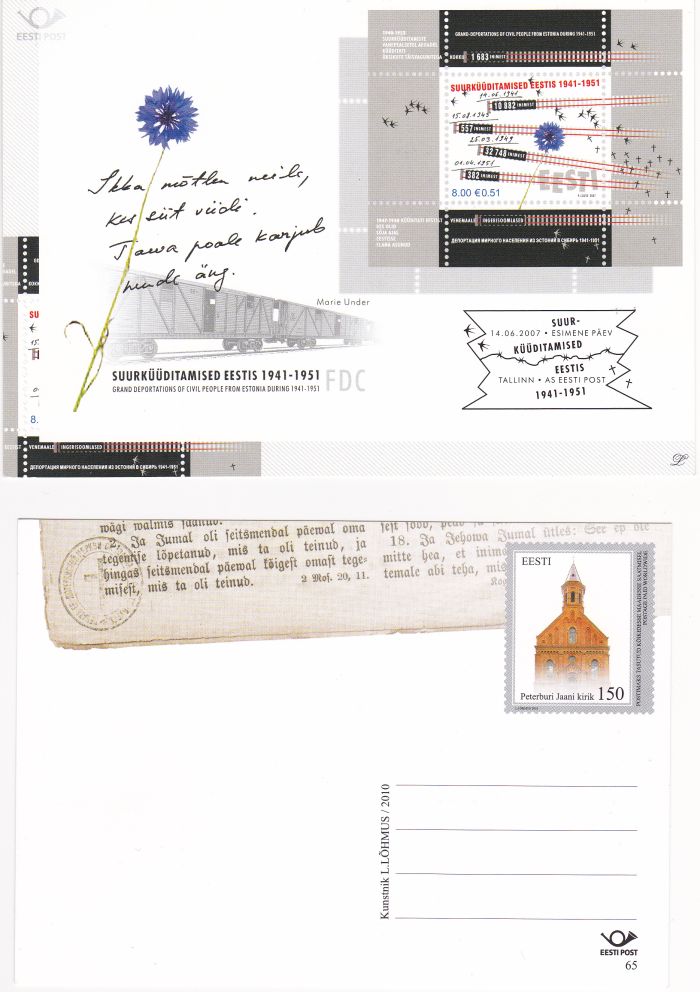 EESTI POST
1940-1950
SUURKÜÜDITAMISTE
VAHEPEALSETEL AEGADEL
KÜÜDITATI
ÜKSIKUTE TÄISVAGUNITEGA
GRAND-DEPORTATIONS OF CIVIL PEOPLE FROM ESTONIA DURING 1941-1951
KOKKU 1 683 INIMEST
SUURKÜÜDITAMISED EESTIS 1941-1951
14.06.1941
10 882 INIMEST
15.08.1945
557 INIMEST
25.03.1949
32 748 INIMEST
01.04.1951
382 INIMEST
8.00 €0.51
EESTI
VENEMAALE INGERISOOMLASED
ДЕПОРТАЦИЯ МИРНОГО НАСЕЛЕНИЯ ИЗ ЭСТОНИИ В СИБИРЬ 1941-1951
Ikka mõtlen neile,
kes siit viidi.
Taeva poole karjub
nende äng.
Marie Under
SUURKÜÜDITAMISED EESTIS 1941-1951
GRAND DEPORTATIONS OF CIVIL PEOPLE FROM ESTONIA DURING 1941-1951
FDC
SUUR-
14.06.2007 • ESIMENE PÄEV
KÜÜDITAMISED
EESTIS
TALLINN • AS EESTI POST
1941-1951
8.
VENEMAALE INGERISOOMLASED
ДЕПОРТАЦИЯ МИРНОГО НАСЕЛЕНИЯ ИЗ ЭСТОНИИ В СИБИРЬ 1941-1951
wägi walmis saanud.
2. Ja Jumal oli seitsmendal päewal oma
tegemise lõpetanud, mis ta oli teinud, ja
hingas seitsmendal päewal kõigest omast tege-
misest, mis ta oli teinud. 2 Mos. 20, 11.
18. Ja Jehowa Jumal ütles: See ep ole
mitte hea, et inime
temale abi teha, mis
EESTI
Peterburi Jaani kirik 150
POSTIMAKS TASUTUD KÕIKIDESSE MAADESSE SAATMISEL
POSTAGE PAID WORLDWIDE
Kunstnik L.LÕHMUS / 2010
EESTI POST
65